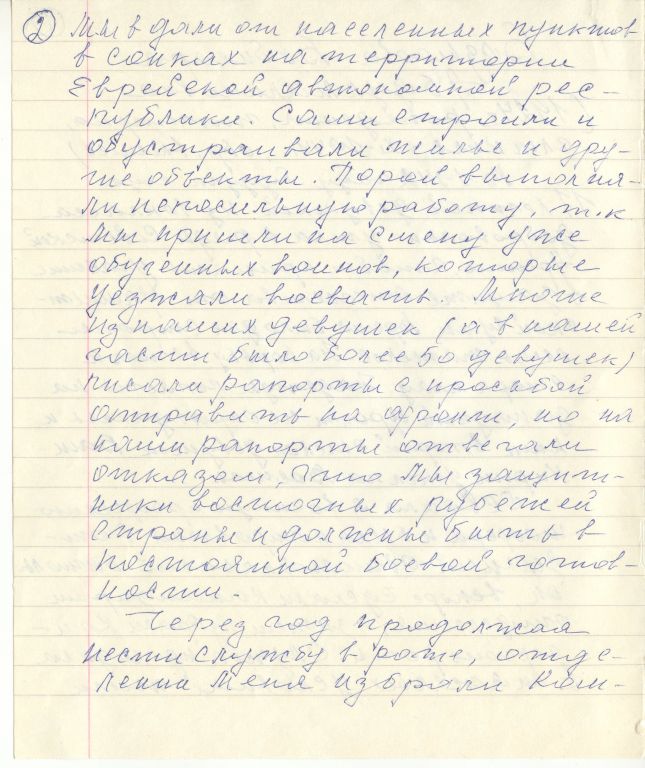 2
мы в дали от населенных пунктов
в сопках на территории
Еврейской автономной рес-
публики. Сами строили и
обустраивали жилье и дру-
гие объекты. Порой выполня-
ли непосильную работу, т.к.
мы пришли на смену уже
обученных воинов, которые
уезжали воевать. Многие
из наших девушек (а в нашей
части было более 50 девушек)
писали рапорты с просьбой
отправить на фронт, но на
наши рапорты отвечали
отказом, что мы защит-
ники восточных рубежей
страны и должны быть в
постоянной боевой готов-
ности.
Через год продолжая
нести службу в роте, отде-
лении меня избрали Ком-